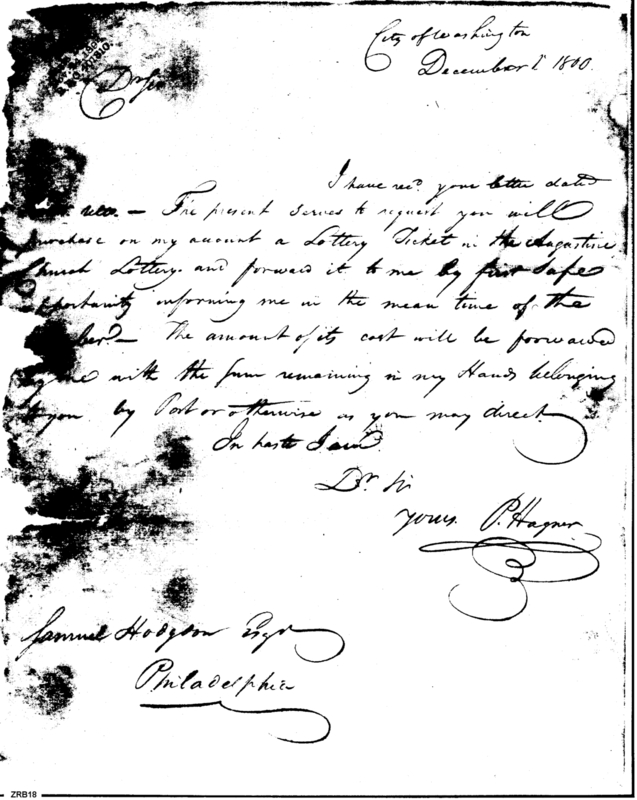 City of Washington
December 1st 1800.
Dr Sir
I have recd. your letter dated
ulto. — The present serves to request you will
purchase on my account a Lottery Ticket in the Augustine
Church Lottery. and forward it to me by first Safe
opportunity informing me in the mean time of the
ber. — The amount of its cost will be forwarded
by me with the sum remaining in my Hands belonging
to you by Post or otherwise as you may direct.
In haste I am
Dr. Sir
yours. P. Hagner
Samuel Hodgson Esqr
Philadelphia
ZRB18